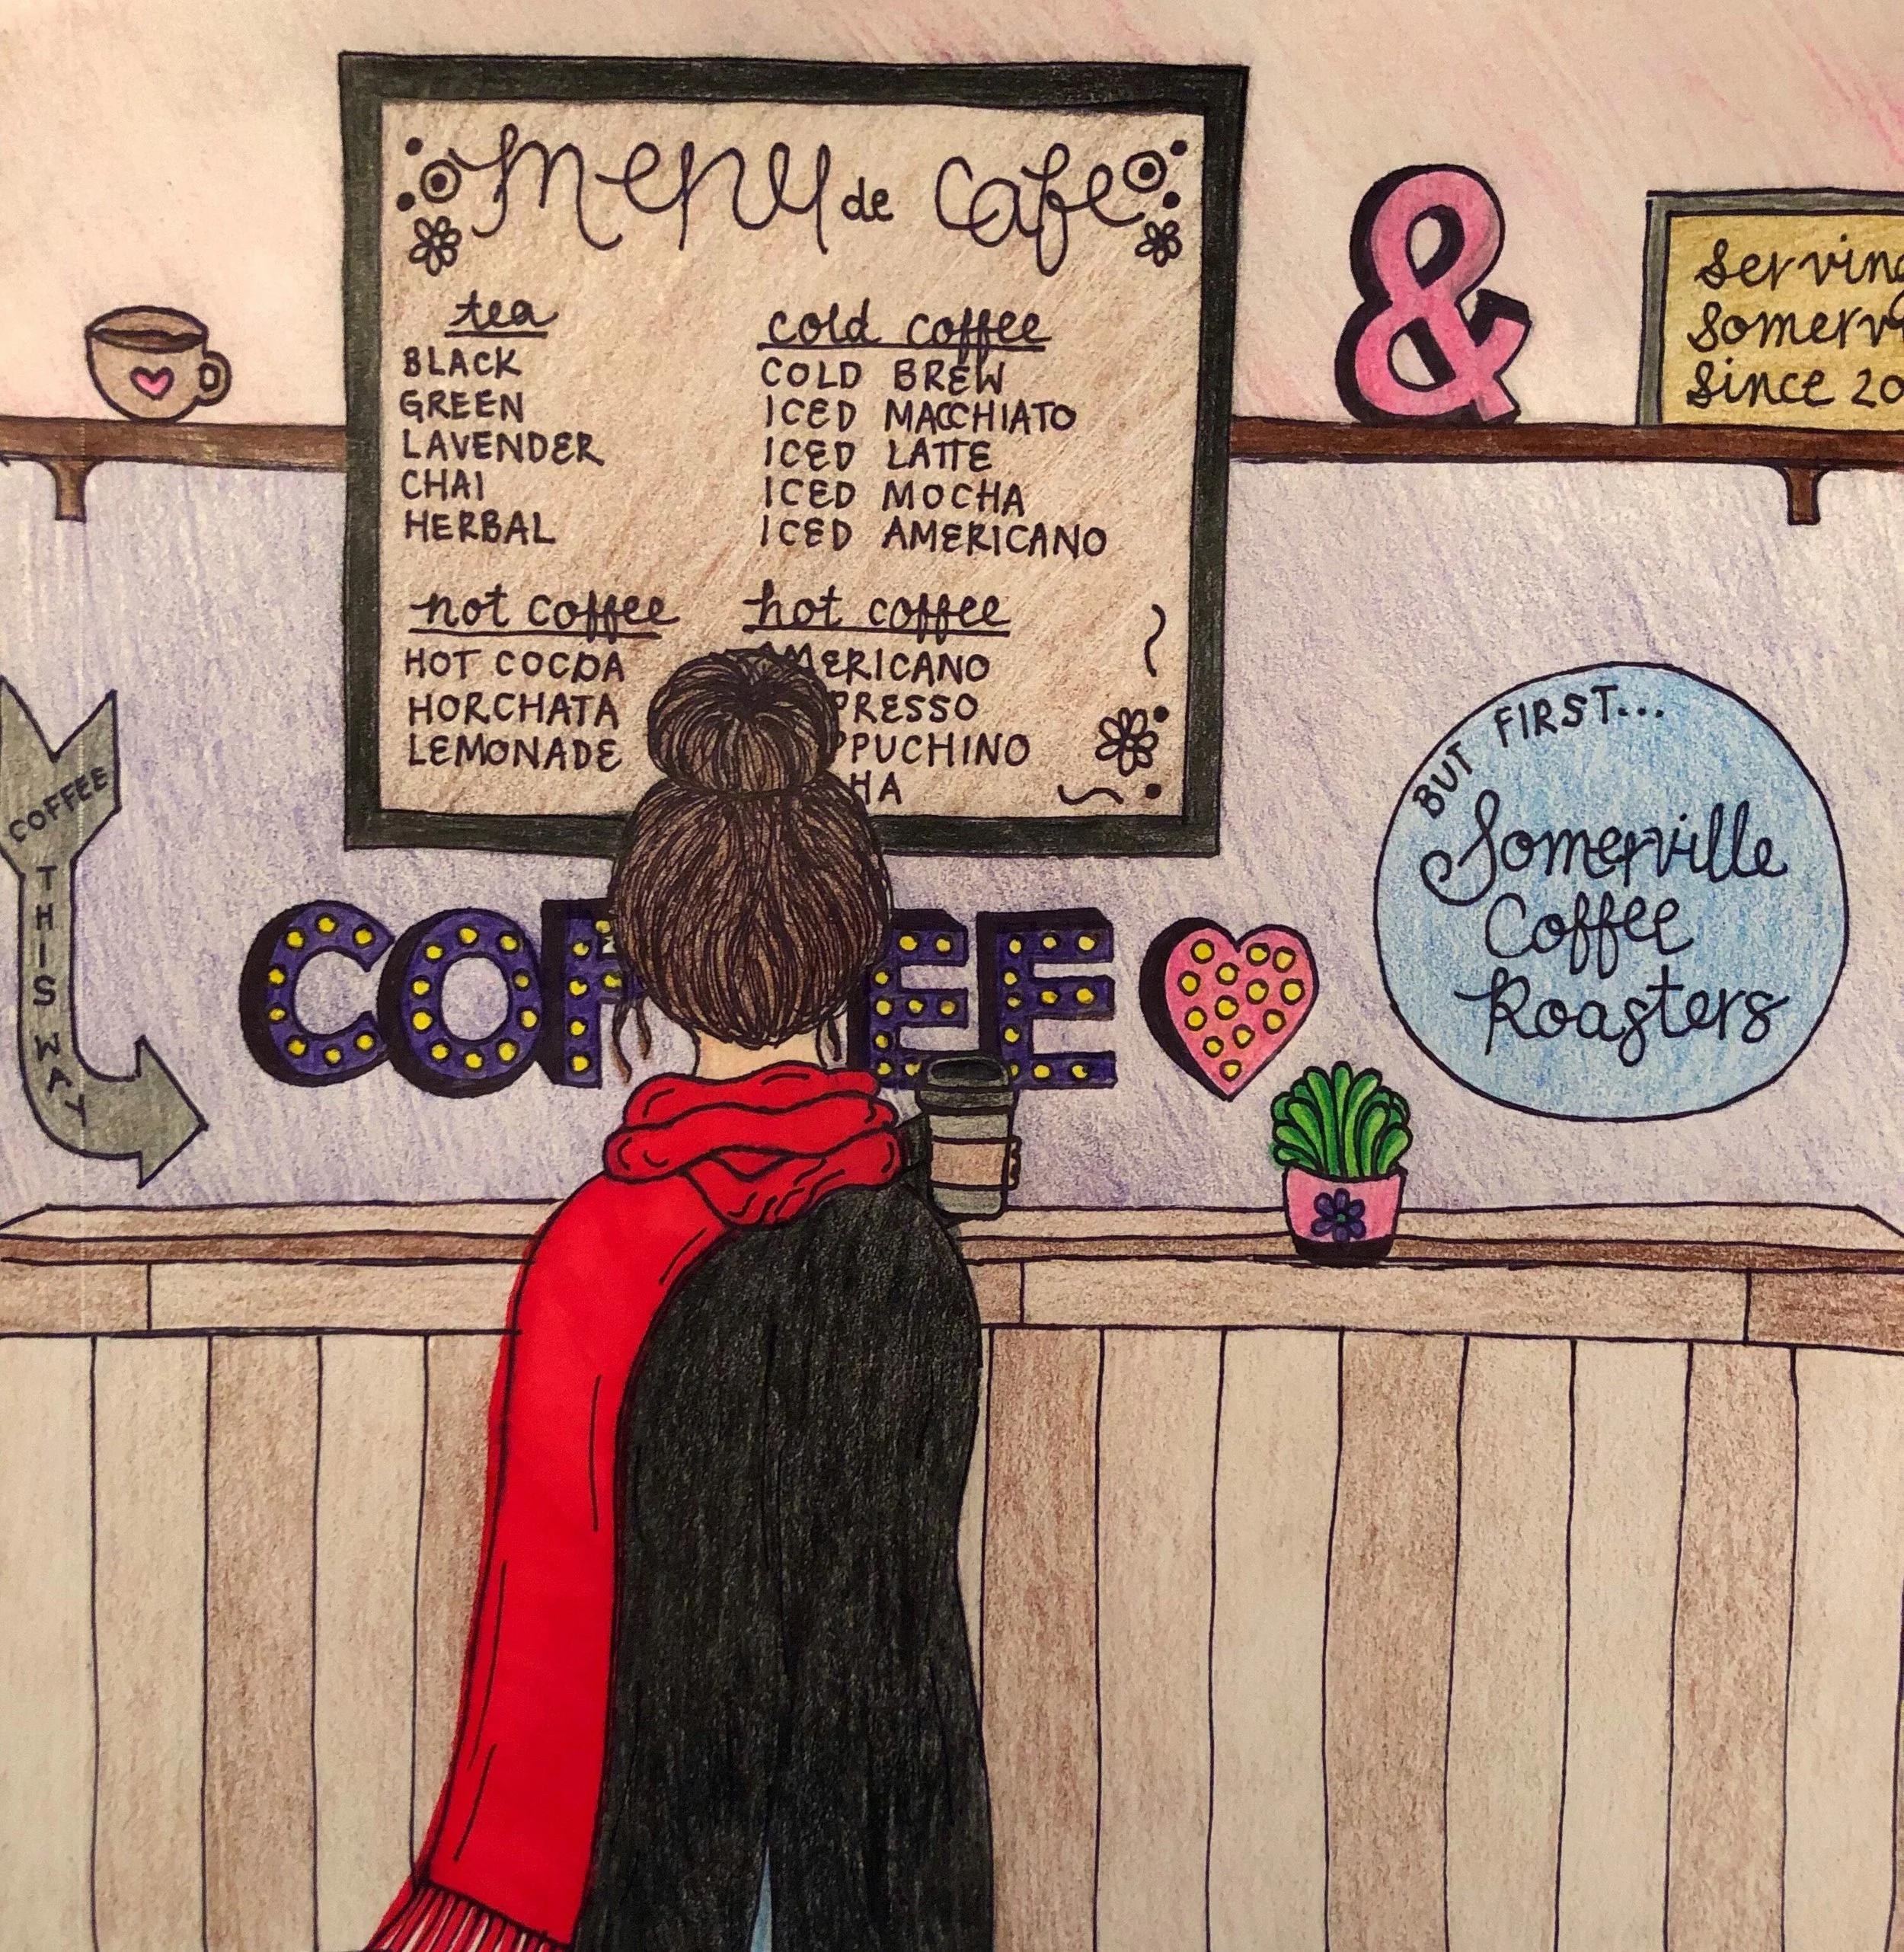 menu de cafe
tea
BLACK
GREEN
LAVENDER
CHAI
HERBAL
not coffee
HOT COCOA
HORCHATA
LEMONADE
cold coffee
COLD BREW
ICED MACCHIATO
ICED LATTE
ICED MOCHA
ICED AMERICANO
hot coffee
AMERICANO
PRESSO
PPUCHINO
HA
&
Serving
Somerv
Since 20
COFFEE
THIS WAY
COF EE
BUT FIRST...
Somerville
Coffee
Roasters